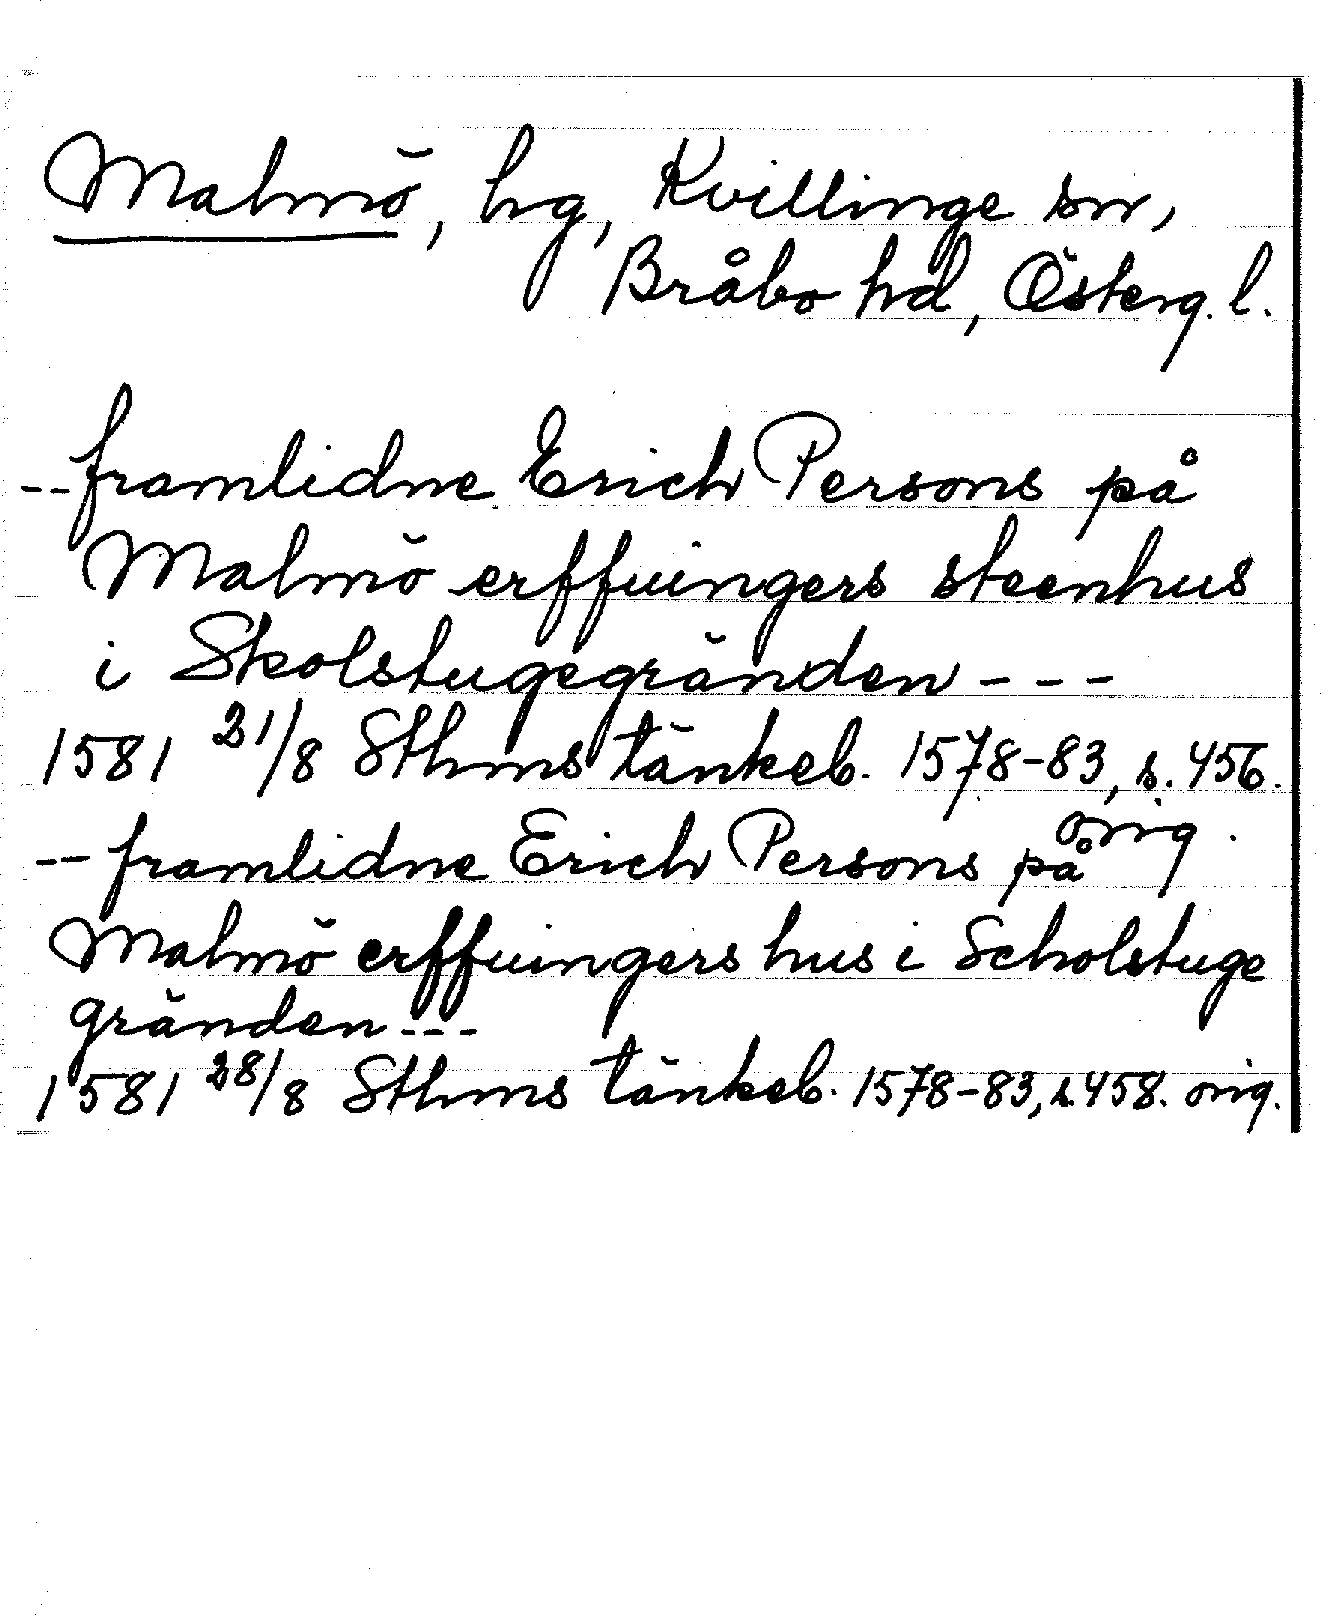 Malmö, hg, Kvillinge sn,
Bråbo hd, Österg. l.
-- framlidne Erich Persons på
Malmö erffuingers steenhus
i Skolstugegränden ---
1581 21/8 Sthms tänkeb. 1578-83, s. 456.
orig.
-- framlidne Erich Persons på
Malmö erffuingers hus i Scholstuge
gränden ---
1581 28/8 Sthms tänkeb. 1578-83, s. 458. orig.